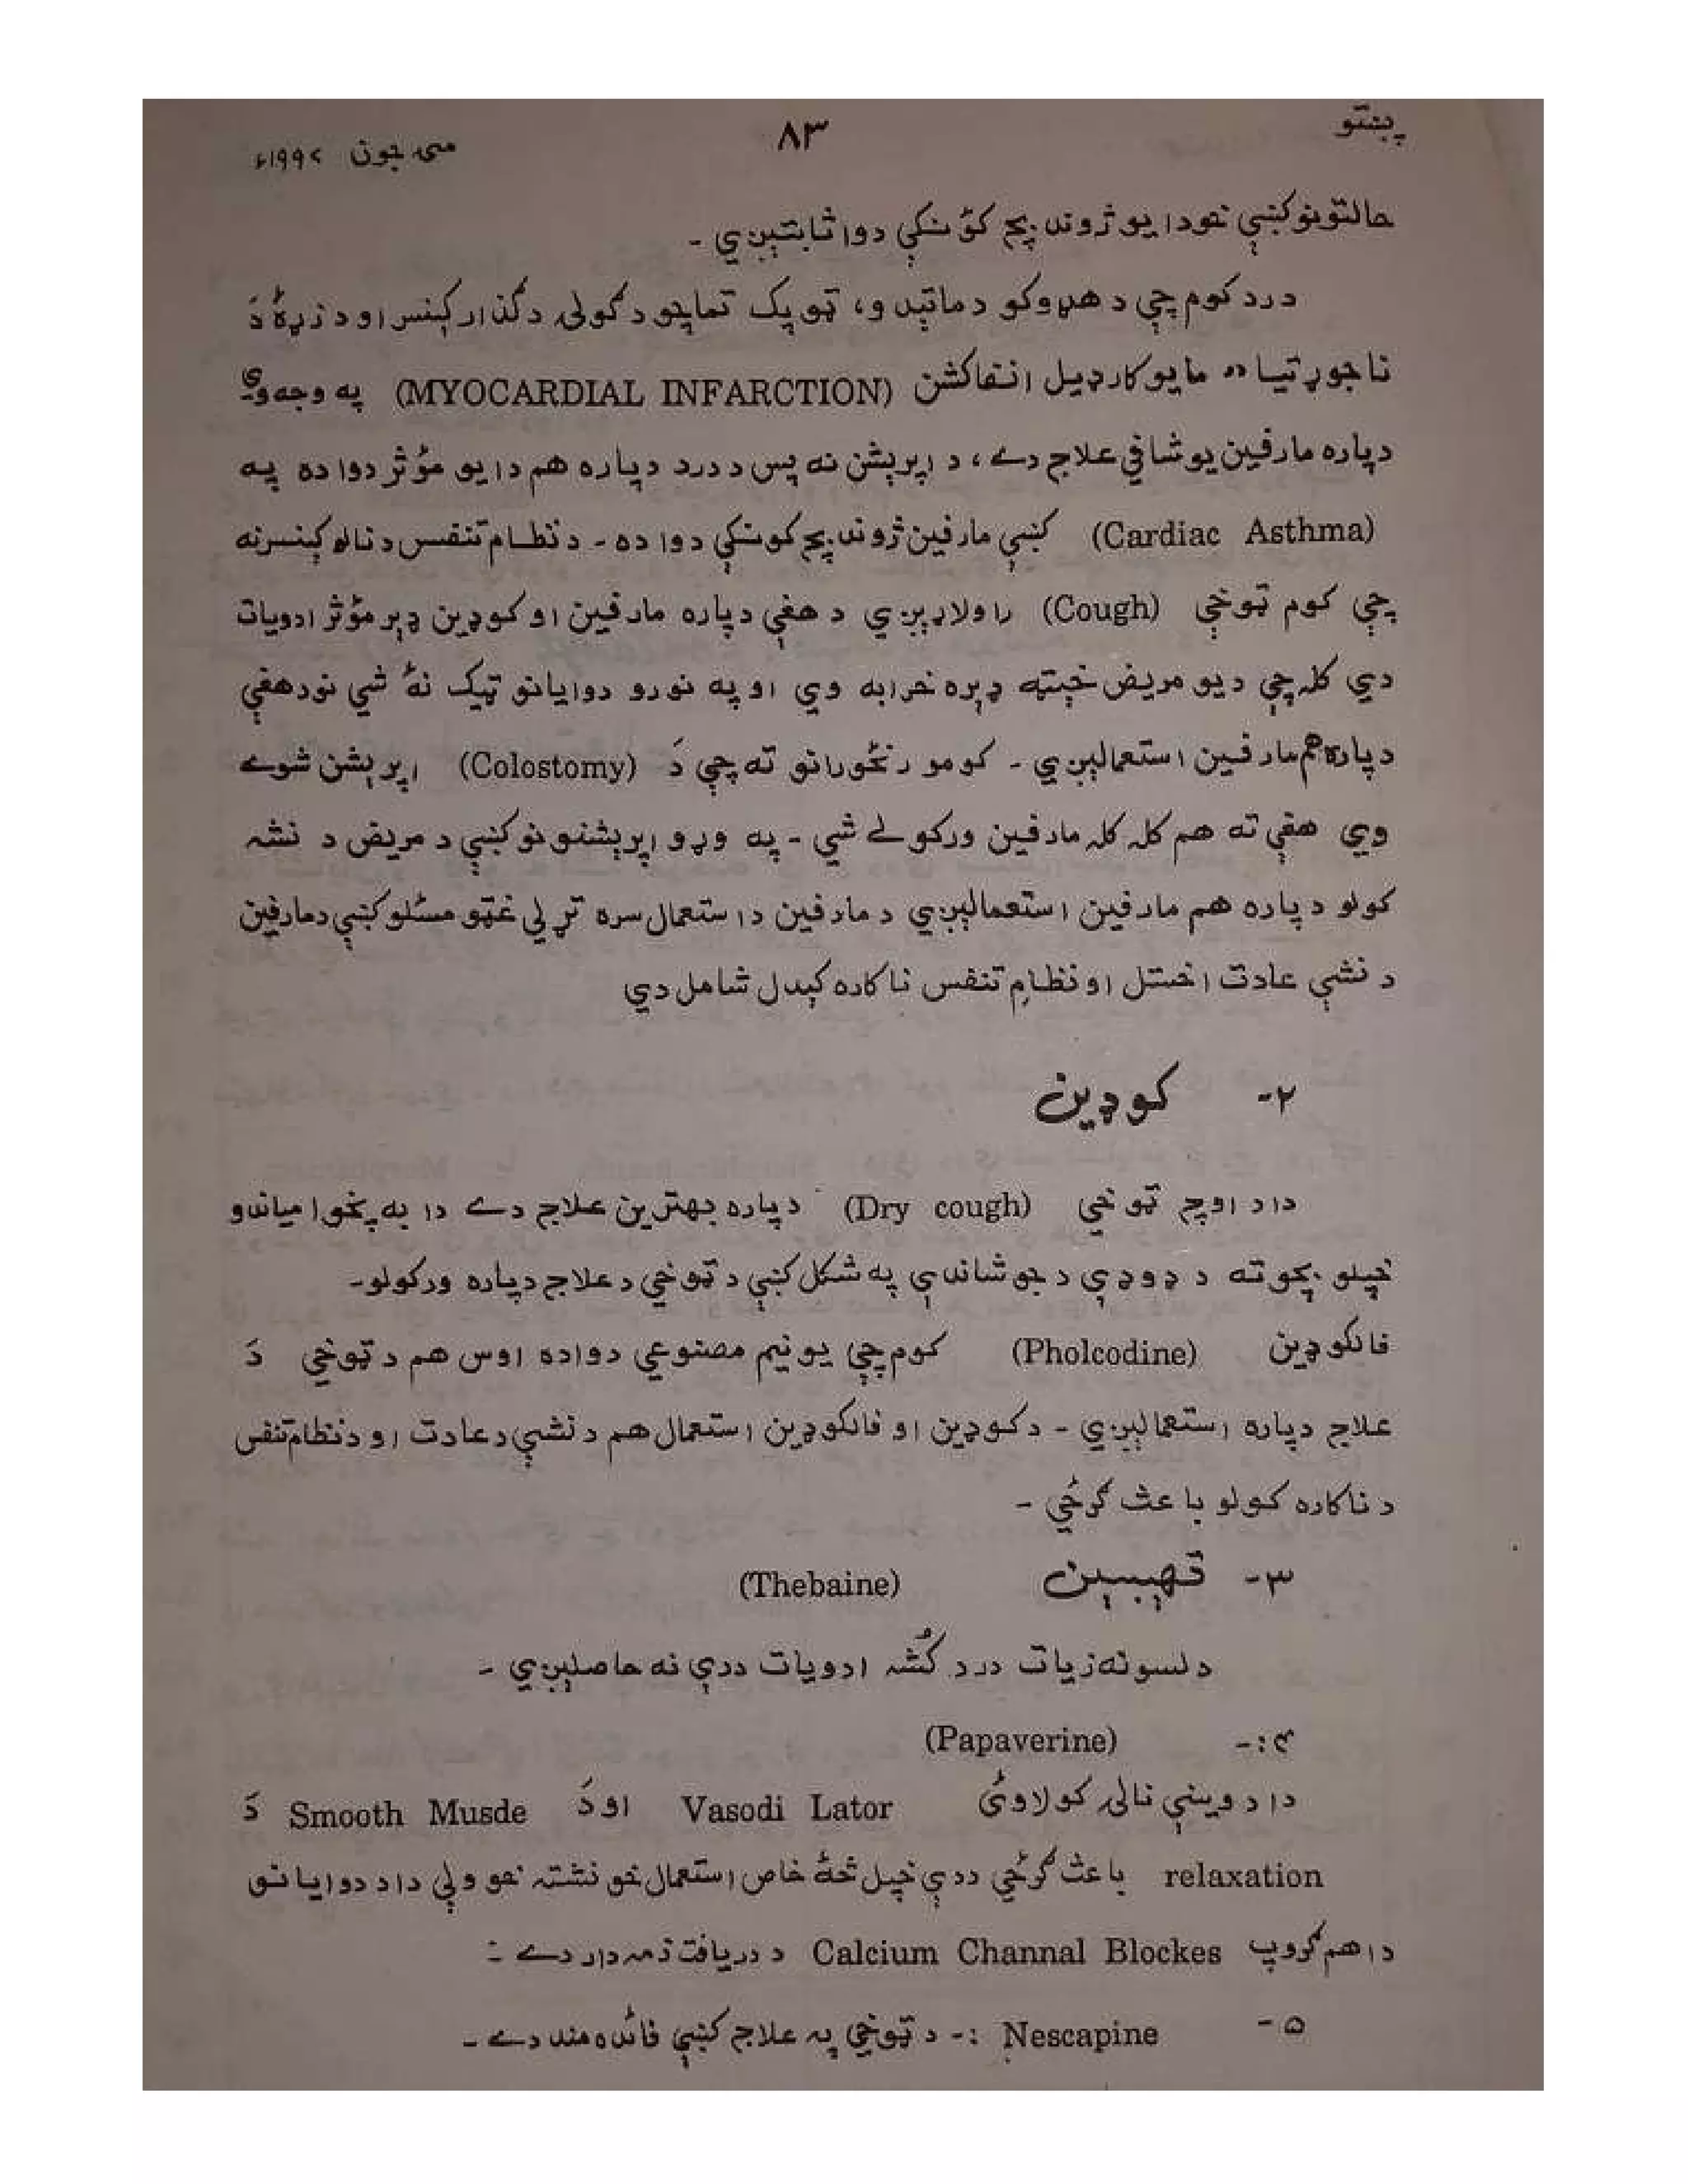 پښتو ۸۳ مئی جون ۱۹۹۷ء
حالتونو کښې خو دا یو ژوندبچ کوُنکې دوا ثابتېږي ـ
درد کوم چې د هډوکو د ماتېدو، ټوپک تماچو د ګولۍ د ګذار کېنسر او د زړهٔ دَ
ناجوړتیا " مایو کارډیل انفاکشن (MYOCARDIAL INFARCTION) په وجه وي
دپاره مارفین یو شافي علاج دے، د اپرېشن نه پس د درد دپاره هم دا یو مؤثر دوا ده په
(Cardiac Asthma) کښې مارفین ژوندبچ کونکې دوا ده ـ د نظام تنفس د نالو کېنسر نه
چې کوم ټوخې (Cough) راولاړېږي د هغې دپاره مارفین او کوډین ډېر مؤثر ادویات
دي کله چې د یو مریض خېټه ډېره خرابه وي او په نورو دوایانو ټیک نهٔ شي نو د هغې
دپاره هم مارفین استعمالېږي ـ کومو رنځورانو ته چې دَ (Colostomy) اپرېشن شوے
وي هغې ته هم کله کله مارفین ورکولے شي ـ په وړو اپرېشنونو کښې د مریض د نشه
کولو دپاره هم مارفین استعمالېږي د مارفین د استعمال سره تړلي غټو مسئلو کښې د مارفین
د نشې عادت اخستل او نظامِ تنفس ناکاره کېدل شامل دي
۲- کوډین
دا د اوچ ټوخي (Dry cough) دپاره بهترین علاج دے دا به پخوا میاندو
خپلو بچو ته د ډوډې د جوشاندې په شکل کښې د ټوخي د علاج دپاره ورکولو ـ
فالکوډین (Pholcodine) کوم چې یو نیم مصنوعي دوا ده اوس هم د ټوخي دَ
علاج دپاره استعمالېږي ـ د کوډین او فالکوډین استعمال هم د نشې د عادت او د نظام تنفس
د ناکاره کولو باعث ګرځي ـ
۳- تهېبېین (Thebaine)
د لسو نه زیات درد کُشه ادویات ددې نه حاصلېږي ـ
۴:- (Papaverine)
دا د وینې نالۍ کولاوئ Vasodi Lator او دَ Smooth Musde دَ
relaxation باعث ګرځي ددې خپل څهٔ خاص استعمال خو نشته خو ولې دا د دوایانو
دا هم ګروپ Calcium Channal Blockes د دریافت ذمه دار دے :
۵- Nescapine :- د ټوخي په علاج کښې فائده مند دے ـ